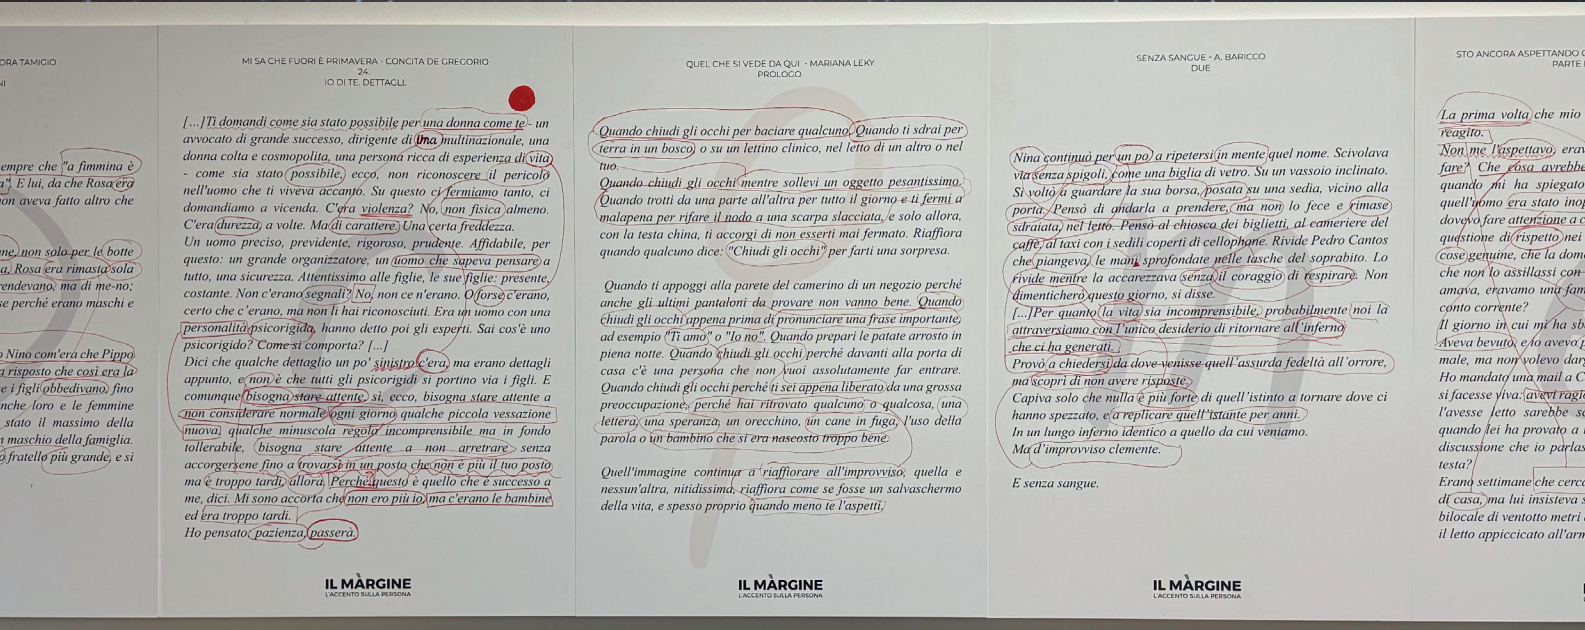 ORA TAMIGIO
NI
empre che "a fimmina è
a". E lui, da che Rosa era
non aveva fatto altro che
ne, non solo per le botte
a, Rosa era rimasta sola
rendevano, ma di me-no;
se perché erano maschi e
o Nino com'era che Pippo
a risposto che così era la
e i figli obbedivano, fino
nche loro e le femmine
stato il massimo della
n maschio della famiglia.
o fratello più grande, e si
MI SA CHE FUORI È PRIMAVERA - CONCITA DE GREGORIO
24.
IO DI TE. DETTAGLI.
[...]Ti domandi come sia stato possibile per una donna come te - un
avvocato di grande successo, dirigente di una multinazionale, una
donna colta e cosmopolita, una persona ricca di esperienza di vita
- come sia stato possibile, ecco, non riconoscere il pericolo
nell'uomo che ti viveva accanto. Su questo ci fermiamo tanto, ci
domandiamo a vicenda. C'era violenza? No, non fisica almeno.
C'era durezza, a volte. Ma di carattere. Una certa freddezza.
Un uomo preciso, previdente, rigoroso, prudente. Affidabile, per
questo: un grande organizzatore, un uomo che sapeva pensare a
tutto, una sicurezza. Attentissimo alle figlie, le sue figlie: presente,
costante. Non c'erano segnali? No, non ce n'erano. O forse c'erano,
certo che c'erano, ma non li hai riconosciuti. Era un uomo con una
personalità psicorigida, hanno detto poi gli esperti. Sai cos'è uno
psicorigido? Come si comporta? [...]
Dici che qualche dettaglio un po' sinistro c'era, ma erano dettagli
appunto, e non è che tutti gli psicorigidi si portino via i figli. E
comunque bisogna stare attente, sì, ecco, bisogna stare attente a
non considerare normale ogni giorno qualche piccola vessazione
nuova, qualche minuscola regola incomprensibile ma in fondo
tollerabile, bisogna stare attente a non arretrare senza
accorgersene fino a trovarsi in un posto che non è più il tuo posto
ma è troppo tardi, allora. Perché questo è quello che è successo a
me, dici. Mi sono accorta che non ero più io, ma c'erano le bambine
ed era troppo tardi.
Ho pensato: pazienza, passerà.
IL MÀRGINE
L'ACCENTO SULLA PERSONA
QUEL CHE SI VEDE DA QUI - MARIANA LEKY
PROLOGO.
Quando chiudi gli occhi per baciare qualcuno. Quando ti sdrai per
terra in un bosco, o su un lettino clinico, nel letto di un altro o nel
tuo.
Quando chiudi gli occhi mentre sollevi un oggetto pesantissimo.
Quando trotti da una parte all'altra per tutto il giorno e ti fermi a
malapena per rifare il nodo a una scarpa slacciata, e solo allora,
con la testa china, ti accorgi di non esserti mai fermato. Riaffiora
quando qualcuno dice: "Chiudi gli occhi" per farti una sorpresa.
Quando ti appoggi alla parete del camerino di un negozio perché
anche gli ultimi pantaloni da provare non vanno bene. Quando
chiudi gli occhi appena prima di pronunciare una frase importante,
ad esempio "Ti amo" o "Io no". Quando prepari le patate arrosto in
piena notte. Quando chiudi gli occhi perché davanti alla porta di
casa c'è una persona che non vuoi assolutamente far entrare.
Quando chiudi gli occhi perché ti sei appena liberato da una grossa
preoccupazione, perché hai ritrovato qualcuno o qualcosa, una
lettera, una speranza, un orecchino, un cane in fuga, l'uso della
parola o un bambino che si era nascosto troppo bene.
Quell'immagine continua a riaffiorare all'improvviso, quella e
nessun'altra, nitidissima, riaffiora come se fosse un salvaschermo
della vita, e spesso proprio quando meno te l'aspetti.
IL MÀRGINE
L'ACCENTO SULLA PERSONA
SENZA SANGUE - A. BARICCO
DUE
Nina continuò per un po' a ripetersi in mente quel nome. Scivolava
via senza spigoli, come una biglia di vetro. Su un vassoio inclinato.
Si voltò a guardare la sua borsa, posata su una sedia, vicino alla
porta. Pensò di andarla a prendere, ma non lo fece e rimase
sdraiata, nel letto. Pensò al chiosco dei biglietti, al cameriere del
caffè, al taxi con i sedili coperti di cellophane. Rivide Pedro Cantos
che piangeva, le mani sprofondate nelle tasche del soprabito. Lo
rivide mentre la accarezzava senza il coraggio di respirare. Non
dimenticherò questo giorno, si disse.
[...]Per quanto la vita sia incomprensibile, probabilmente noi la
attraversiamo con l'unico desiderio di ritornare all'inferno
che ci ha generati.
Provò a chiedersi da dove venisse quell'assurda fedeltà all'orrore,
ma scoprì di non avere risposte.
Capiva solo che nulla è più forte di quell'istinto a tornare dove ci
hanno spezzato, e a replicare quell'istante per anni.
In un lungo inferno identico a quello da cui veniamo.
Ma d'improvviso clemente.
E senza sangue.
IL MÀRGINE
L'ACCENTO SULLA PERSONA
STO ANCORA ASPETTANDO
PARTE
La prima volta che mio
reagito.
Non me l'aspettavo, erav
fare? Che cosa avrebbe
quando mi ha spiegato
quell'uomo era stato inop
dovevo fare attenzione a c
questione di rispetto nei
cose genuine, che la dom
che non lo assillassi con
amava, eravamo una fam
conto corrente?
Il giorno in cui mi ha sb
Aveva bevuto, e io avevo p
male, ma non volevo darg
Ho mandato una mail a C
si facesse viva: avevi ragio
l'avesse letto sarebbe s
quando lei ha provato a
discussione che io parlas
testa?
Erano settimane che cerca
di casa, ma lui insisteva s
bilocale di ventotto metri
il letto appiccicato all'arm